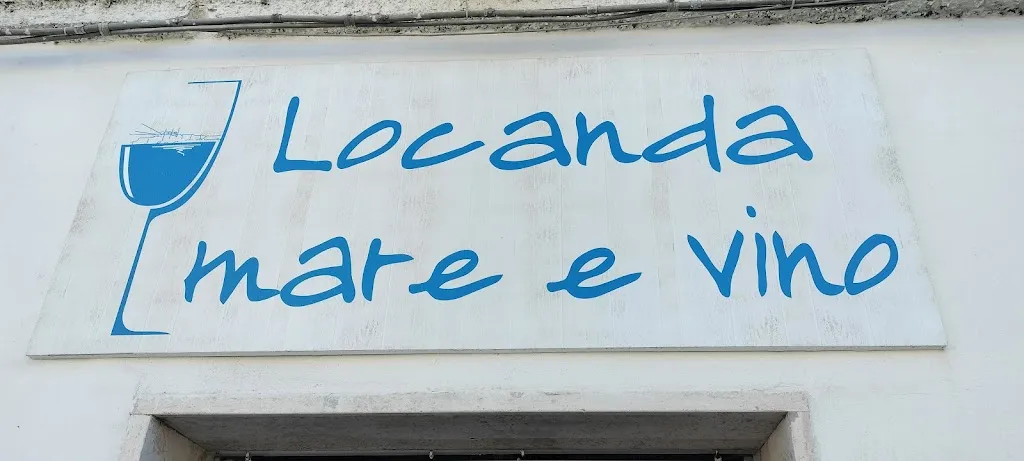 Locanda
mare e vino